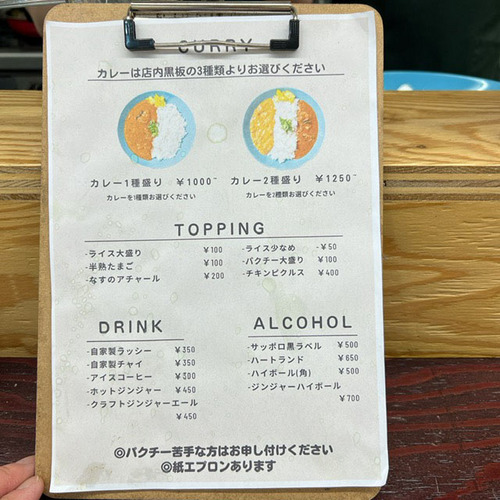 CURRY
カレーは店内黒板の3種類よりお選びください
カレー1種盛り ¥1000~
カレーを1種類お選びください
カレー2種盛り ¥1250~
カレーを2種類お選びください
TOPPING
-ライス大盛り ¥100
-半熟たまご ¥100
-なすのアチャール ¥200
-ライス少なめ -¥50
-パクチー大盛り ¥100
-チキンピクルス ¥400
DRINK
-自家製ラッシー ¥350
-自家製チャイ ¥350
-アイスコーヒー ¥300
-ホットジンジャー ¥450
-クラフトジンジャーエール
¥450
ALCOHOL
-サッポロ黒ラベル ¥500
-ハートランド ¥650
-ハイボール(角) ¥500
-ジンジャーハイボール
¥700
◎パクチー苦手な方はお申し付けください
◎紙エプロンあります